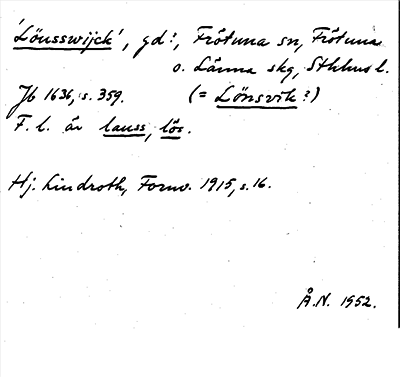 'Löusswijck', gd?, Frötuna sn, Frötuna
o. Länna skg, Sthlms l.
Jb 1636, s. 359. (= Lönsvik?)
F. l. är lauss, lös.
Hj. Lindroth, Fornv. 1915, s. 16.
Å.N. 1952.